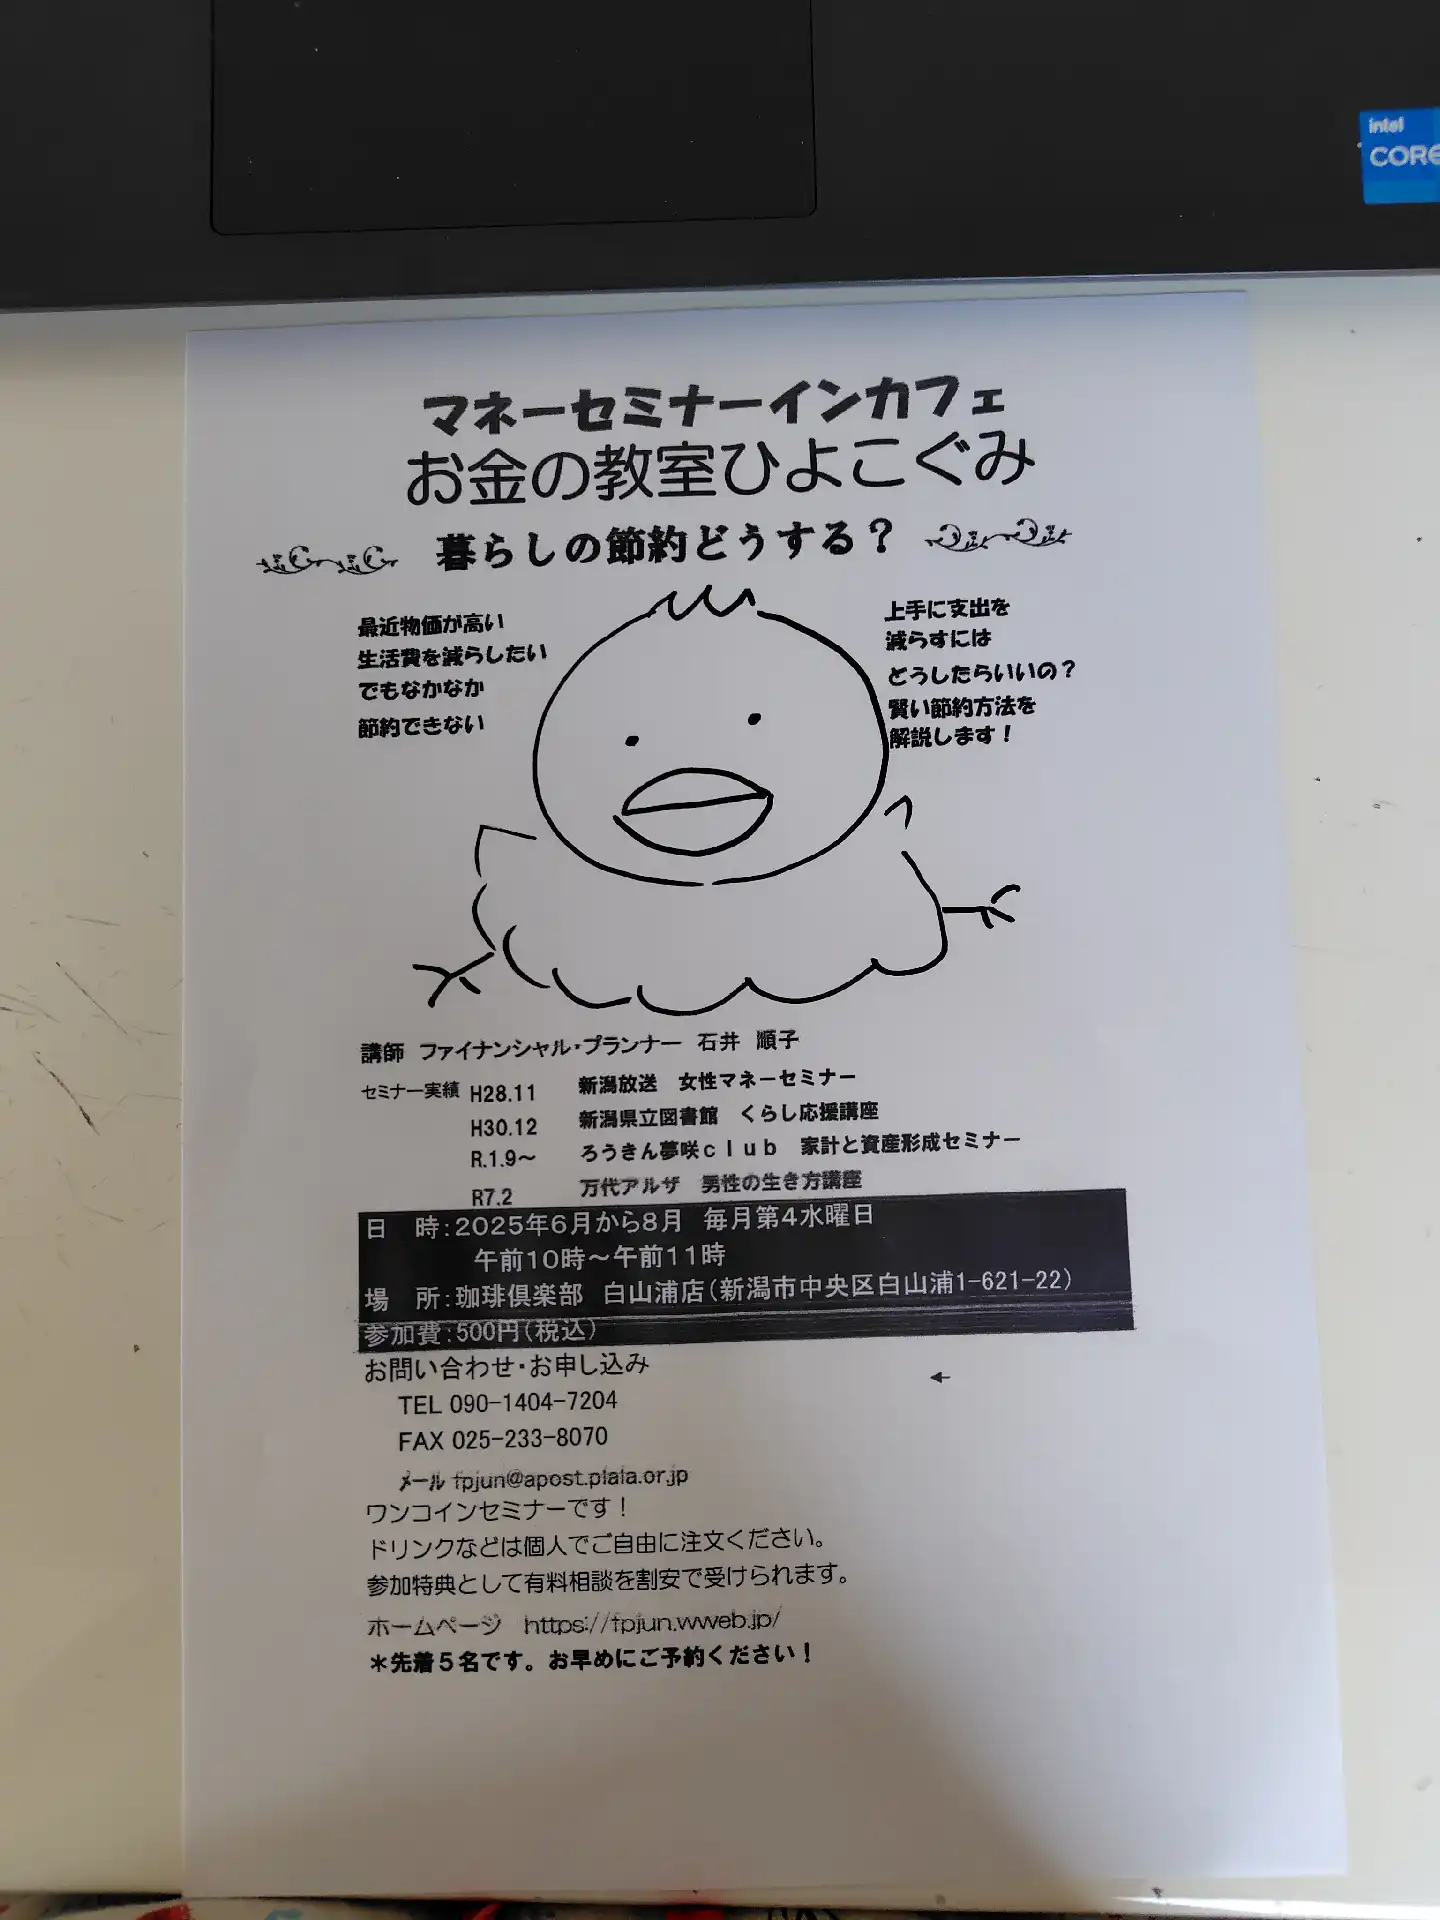 intel
CORE
マネーセミナーインカフェ
お金の教室ひよこぐみ
暮らしの節約どうする？
最近物価が高い
生活費を減らしたい
でもなかなか
節約できない
上手に支出を
減らすには
どうしたらいいの？
賢い節約方法を
解説します！
講師　ファイナンシャル・プランナー　石井　順子
セミナー実績　H28.11　新潟放送　女性マネーセミナー
H30.12　新潟県立図書館　くらし応援講座
R.1.9～　ろうきん夢咲ｃｌｕｂ　家計と資産形成セミナー
R7.2　万代アルザ　男性の生き方講座
日　時：2025年6月から8月　毎月第4水曜日
午前10時～午前11時
場　所：珈琲倶楽部　白山浦店（新潟市中央区白山浦1-621-22）
参加費：500円（税込）
お問い合わせ・お申し込み
TEL 090-1404-7204
FAX 025-233-8070
メール fpjun@apost.plala.or.jp
ワンコインセミナーです！
ドリンクなどは個人でご自由に注文ください。
参加特典として有料相談を割安で受けられます。
ホームページ　https://fpjun.wweb.jp/
＊先着５名です。お早めにご予約ください！